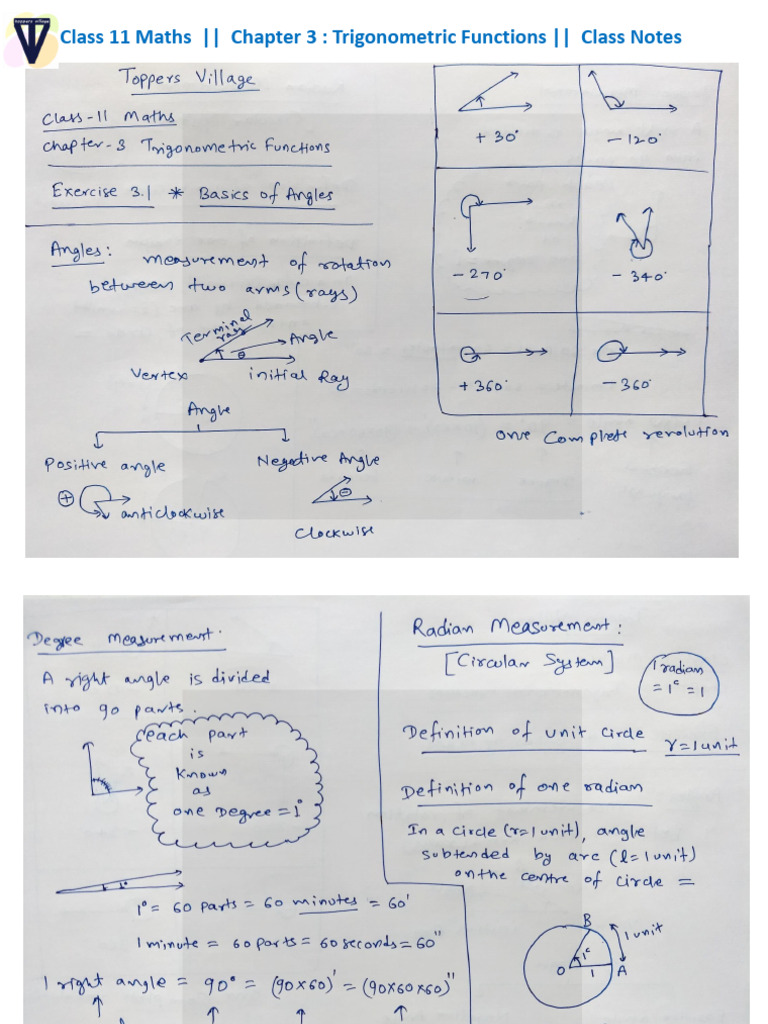 toppers village
Class 11 Maths || Chapter 3 : Trigonometric Functions || Class Notes
Toppers Village
Class-11 Maths
Chapter-3 Trigonometric Functions
Exercise 3.1 * Basics of Angles
Angles: measurement of rotation
between two arms (rays)
Terminal
ray
Angle
θ
Vertex
initial Ray
Angle
Positive angle
Negative Angle
⊕
anticlockwise
⊖
Clockwise
+ 30°
- 120°
- 270°
- 340°
+ 360°
- 360°
one complete revolution
Degree measurement:
A right angle is divided
into 90 parts.
each part
is
Known
as
one Degree = 1°
1°
1° = 60 parts = 60 minutes = 60'
1 minute = 60 parts = 60 seconds = 60"
1 right angle = 90° = (90×60)' = (90×60×60)"
Radian Measurement:
[Circular System]
1 radian
= 1ᶜ = 1
Definition of unit circle
r = 1 unit
Definition of one radian
In a circle (r=1 unit), angle
subtended by arc (l=1 unit)
on the centre of circle =
B
1 unit
1ᶜ
O
1
A